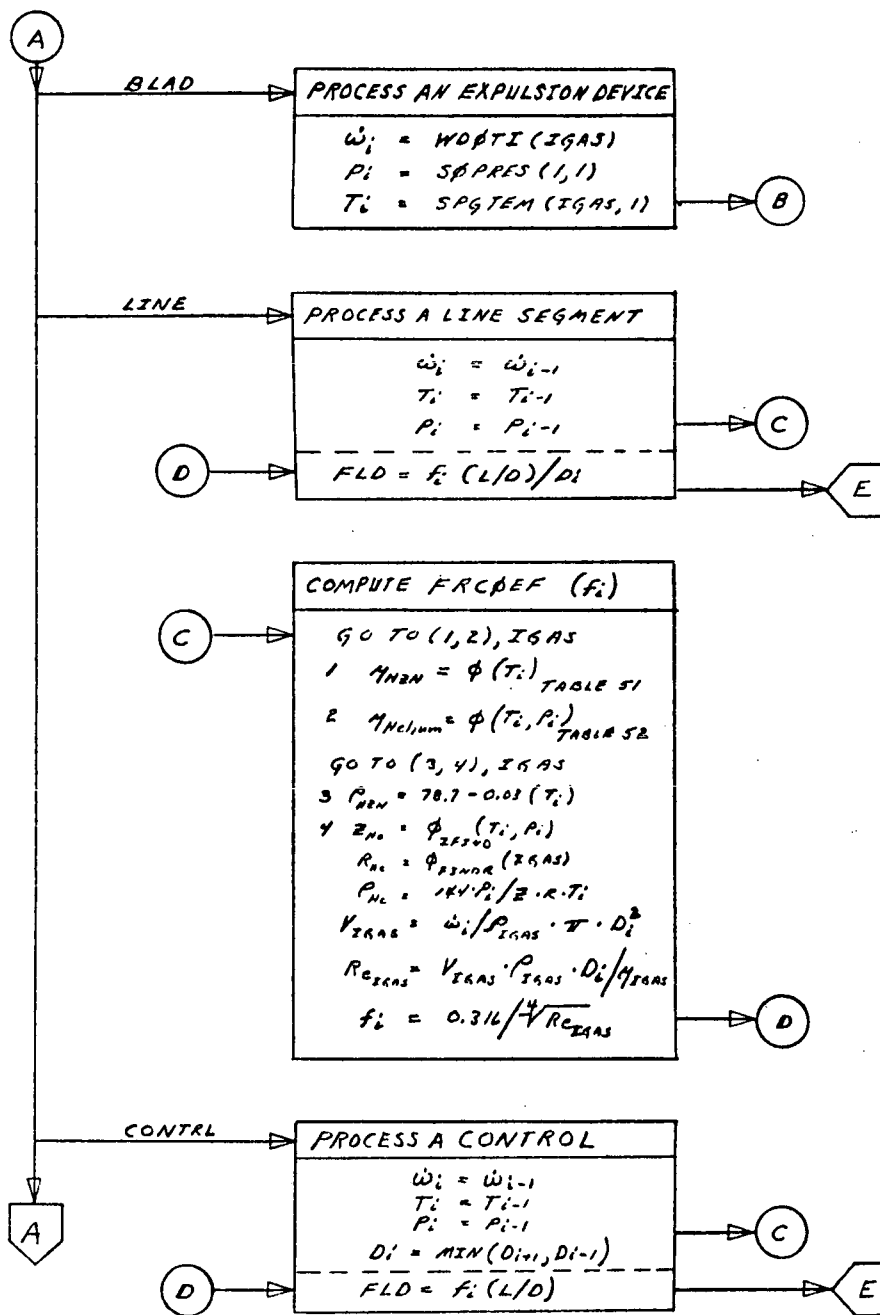 A
BLAD
PROCESS AN EXPULSION DEVICE
ẇi = WDØTI (IGAS)
Pi = SØPRES (1,1)
Ti = SPGTEM (IGAS, 1)
B
LINE
PROCESS A LINE SEGMENT
ẇi = ẇi-1
Ti = Ti-1
Pi = Pi-1
C
D
FLD = fi (L/D)/Di
E
COMPUTE FRCØEF (fi)
C
GO TO (1,2), IGAS
1 μNZN = ϕ (Ti) TABLE 51
2 μHelium = ϕ (Ti, Pi) TABLE 52
GO TO (3,4), IGAS
3 ρNZN = 78.7 - 0.03 (Ti)
4 ZHe = ϕZFIND (Ti, Pi)
RHe = ϕFINDR (IGAS)
ρHe = 144·Pi/Z·R·Ti
VIGAS = ẇi/ρIGAS · π · Di²
ReIGAS = VIGAS · ρIGAS · Di/μIGAS
fi = 0.316/∜ReIGAS
D
CONTRL
PROCESS A CONTROL
ẇi = ẇi-1
Ti = Ti-1
Pi = Pi-1
C
Di = MIN (Di+1, Di-1)
A
D
FLD = fi (L/D)
E